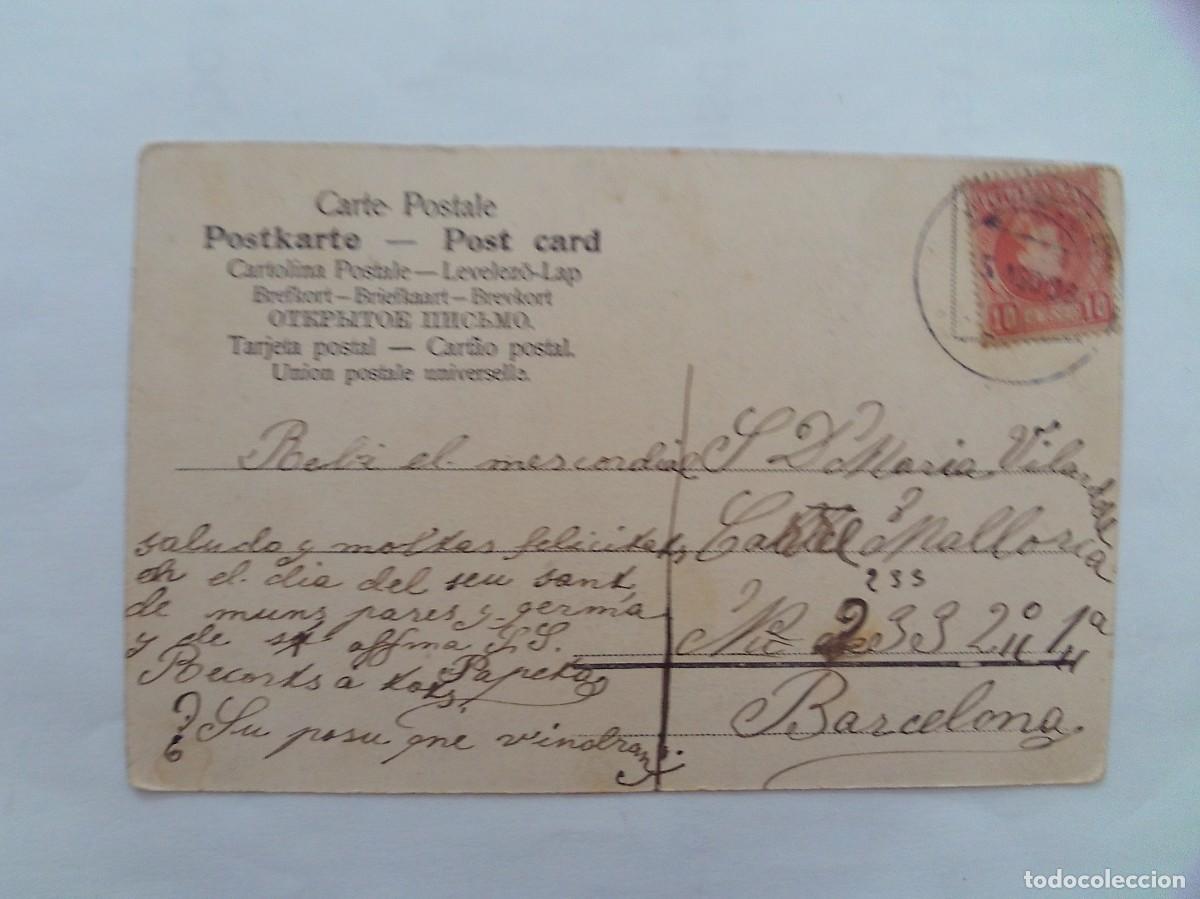 Carte Postale
Postkarte — Post card
Cartolina Postale — Levelező-Lap
Brefkort — Briefkaart — Brevkort
ОТКРЫТОЕ ПИСЬМО.
Tarjeta postal — Cartão postal.
Union postale universelle.
10 10
Rebi el mes cordial
saluda y moltas felicitats
en el dia del seu sant,
de muns pares y germa
y de sa affma S.S.
Papeta
Records a tots.
Su posu que vindran
S Dª Maria Vilardell
Mallorca
233
Nº 233 2º 1ª
Barcelona
todocoleccion